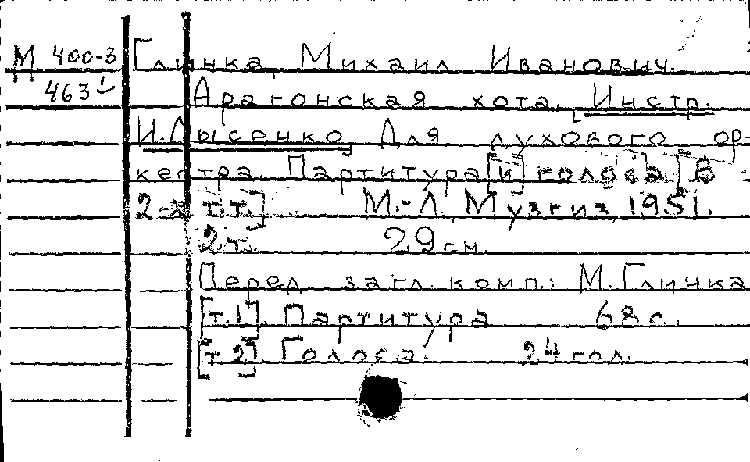 М 400-3 Глинка, Михаил Иванович.
463 Арагонская хота. [Инстр.
И. Лысенко] Для духового ор-
кестра. Партитура [и] голоса [В
2-х т.т.] М.-Л., Музгиз, 1951.
2т. 29 см.
Перед загл. комп.: М. Глинка
[т.1]. Партитура 68 с.
[т.2]. Голоса. 24 гол.